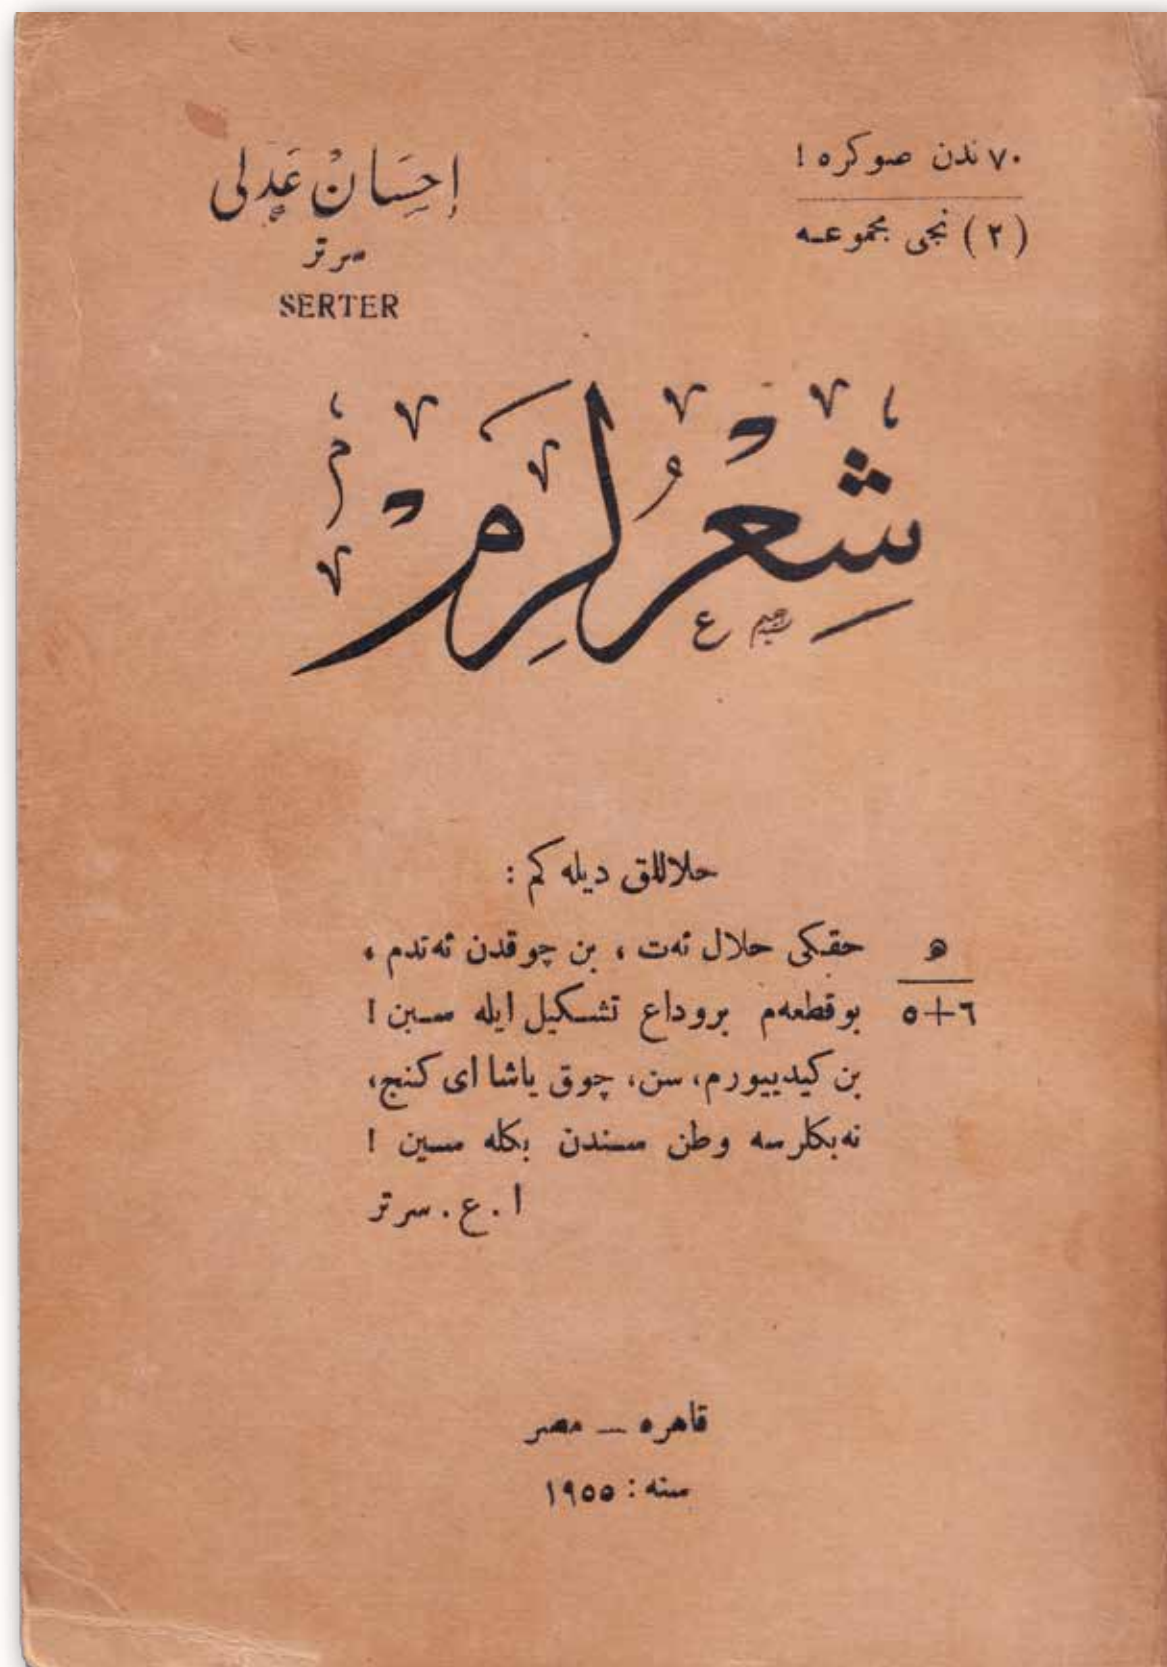 ٧٠ ندن صوكره !
(٢) نجى مجموعه
إحسَانْ عَدلى
سرتر
SERTER
شِعْرلَرِمْ
حلاللق ديله كم :
ه
٦+٥
حقكى حلال ئه ت ، بن چوقدن ئه تدم ،
بو قطعه م بر وداع تشكيل ايله سين !
بن كيدييورم، سن، چوق ياشا اى كنج،
نه بكلرسه وطن سندن بكله سين !
ا . ع . سرتر
قاهره — مصر
سنه : ١٩٥٥